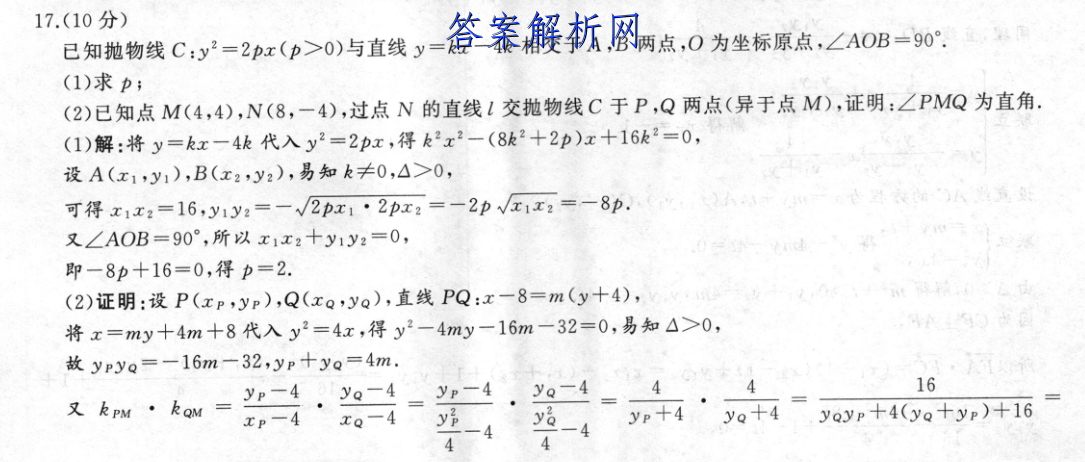 17.(10分)
答案解析网
已知抛物线 C:y²=2px(p>0)与直线 y=kx-4k 相交于 A,B 两点,O 为坐标原点,∠AOB=90°.
(1)求 p;
(2)已知点 M(4,4),N(8,-4),过点 N 的直线 l 交抛物线 C 于 P,Q 两点(异于点 M),证明:∠PMQ 为直角.
(1)解:将 y=kx-4k 代入 y²=2px,得 k²x²-(8k²+2p)x+16k²=0,
设 A(x₁,y₁),B(x₂,y₂),易知 k≠0,Δ>0,
可得 x₁x₂=16,y₁y₂=-√(2px₁·2px₂)=-2p√(x₁x₂)=-8p.
又∠AOB=90°,所以 x₁x₂+y₁y₂=0,
即-8p+16=0,得 p=2.
(2)证明:设 P(x_P,y_P),Q(x_Q,y_Q),直线 PQ:x-8=m(y+4),
将 x=my+4m+8 代入 y²=4x,得 y²-4my-16m-32=0,易知 Δ>0,
故 y_Py_Q=-16m-32,y_P+y_Q=4m.
又 k_PM·k_QM=(y_P-4)/(x_P-4)·(y_Q-4)/(x_Q-4)=(y_P-4)/(y_P²/4-4)·(y_Q-4)/(y_Q²/4-4)=4/(y_P+4)·4/(y_Q+4)=16/(y_Qy_P+4(y_Q+y_P)+16)=